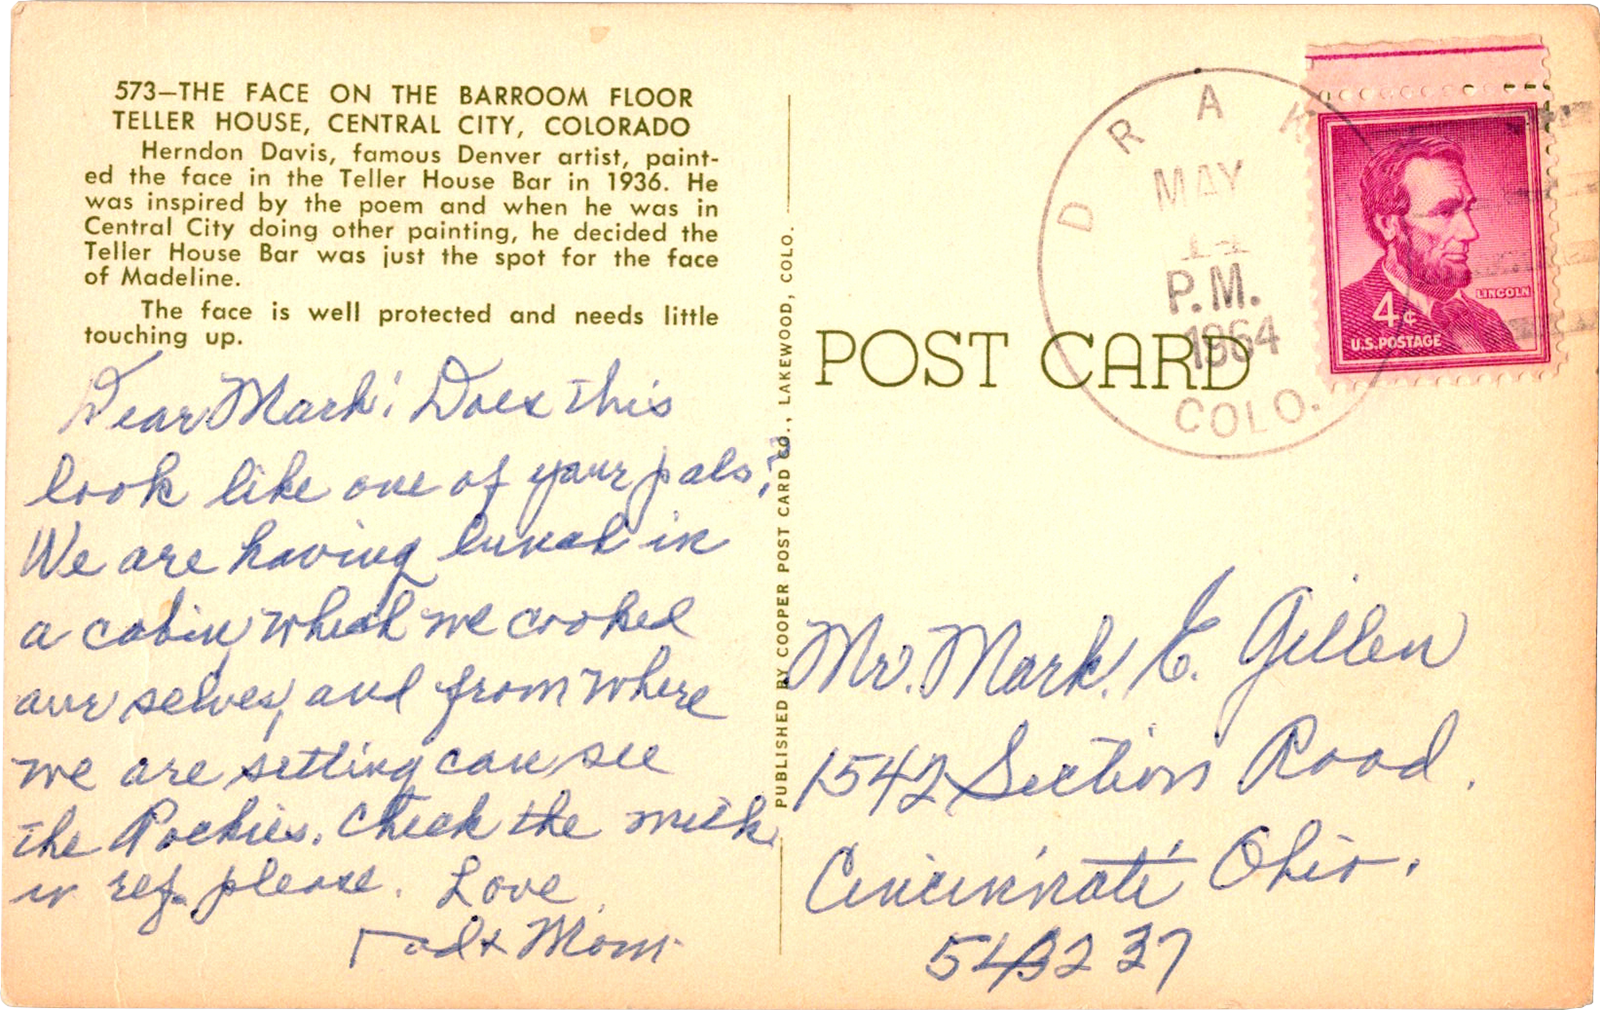 573—THE FACE ON THE BARROOM FLOOR
TELLER HOUSE, CENTRAL CITY, COLORADO
Herndon Davis, famous Denver artist, paint-
ed the face in the Teller House Bar in 1936. He
was inspired by the poem and when he was in
Central City doing other painting, he decided the
Teller House Bar was just the spot for the face
of Madeline.
The face is well protected and needs little
touching up.
Dear Mark: Does this
look like one of your pals?
We are having lunch in
a cabin which we cooked
our selves, and from where
we are setting can see
the Rockies. Check the milk
in ref. please. Love,
Dad + Mom
PUBLISHED BY COOPER POST CARD CO., LAKEWOOD, COLO.
POST CARD
DRAK
MAY
14
P.M.
1964
COLO.
LINCOLN
4¢
U.S. POSTAGE
Mr. Mark. E. Gillen
1542 Section Road.
Cincinnati Ohio.
37